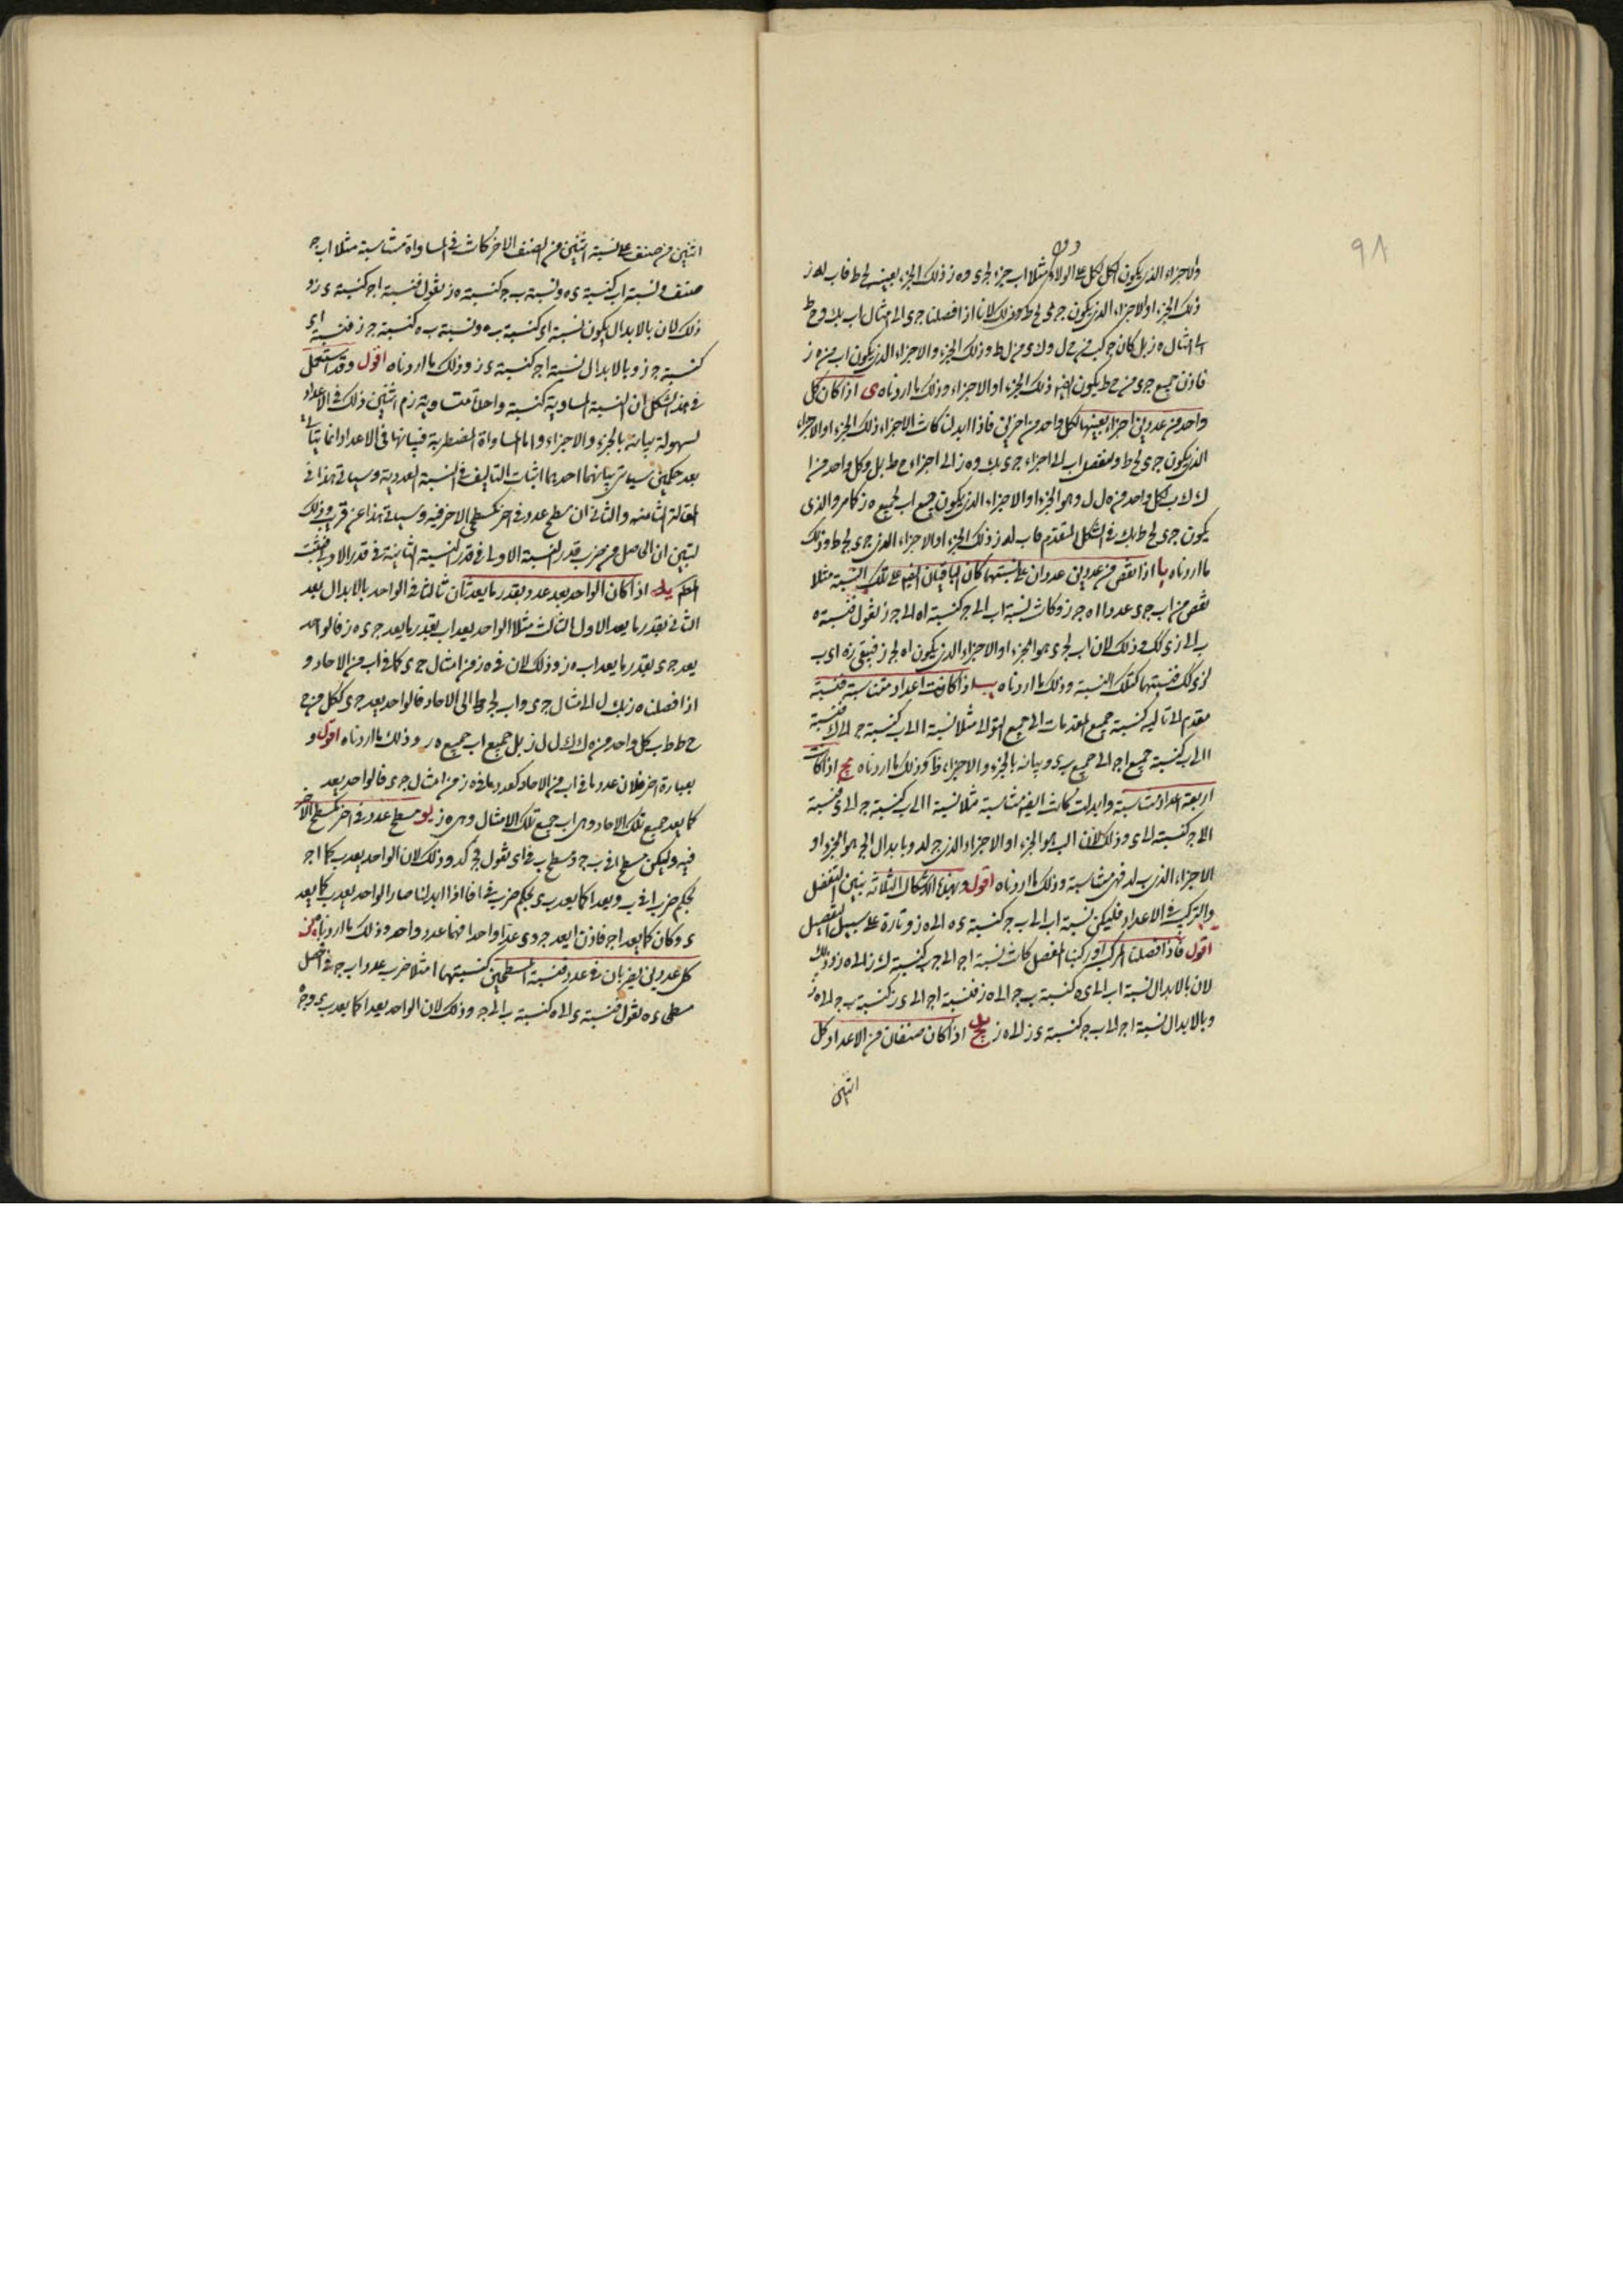 ٩٨
والاجزاء الذى يكون الكل للكل على الولاء مثلا اب جزء لجى وه ز ذلك الجزء بعينه لح ط فاب له ز
ذلك الجزء او الاجزاء الذى يكون جى لح ط وذلك لانا اذا فصلنا جى الى امثال اب بك وح ط
الى امثال ه ز بل كان ج ك من ح ل وك ى من ل ط وذلك الجزء والاجزاء الذى يكون اب من ه ز
فاذن جميع جى من ح ط يكون ايضا ذلك الجزء او الاجزاء وذلك ما اردناه ى اذا كان كل
واحد من عددين اجزاء بعينها لكل واحد من اخرين فاذا ابدلنا كانت الاجزاء ذلك الجزء او الاجزاء
الذى يكون جى لح ط ولنفصل اب الى اجزاء جى بك وه ز الى اجزاء ح ط بل وكل واحد من ا
ك ك ب لكل واحد من ه ل ل ز هو الجزء او الاجزاء الذى يكون جميع اب لجميع ه ز كما مر والذى
يكون جى لح ط بك فى الشكل المتقدم فاب له ز ذلك الجزء او الاجزاء الذى جى لح ط وذلك
ما اردناه يا اذا نقص من عددين عددان على نسبتهما كان الباقيان ايضا على تلك النسبة مثلا
نقص من اب جى عددا اه ج ز وكانت نسبة اب الى ج كنسبة اه الى ج ز نقول فنسبة ه
ب الى زى كك وذلك لان اب لجى هو الجزء او الاجزاء الذى يكون اه لج ز فيبقى زه اى ب
لزى كك فنسبتهما كتلك النسبة وذلك ما اردناه يب اذا كانت اعداد متناسبة فنسبة
مقدم الى تاليه كنسبة جميع المقدمات الى جميع التوالى مثلا نسبة ا الى ب كنسبة ج الى ى فنسبة
ا الى ب كنسبة جميع اج الى جميع بى وبيانه بالجزء والاجزاء ظ وذلك ما اردناه يج اذا كانت
اربعة اعداد متناسبة وابدلت كانت ايضا متناسبة مثلا نسبة ا الى ب كنسبة ج الى ى فنسبة
ا الى ج كنسبة ب الى ى وذلك لان ا لب هو الجزء او الاجزاء الذى ج لى وبابدال ا لج هو الجزء او
الاجزاء الذى ب لى فهى متناسبة وذلك ما اردناه اقول وبهذه الاشكال الثلاثة يتبين التفصيل
والتركيب فى الاعداد فليكن نسبة اب الى ب ج كنسبة ى ه الى ه ز وتارة على سبيل التفصيل
اقول فاذا فصلنا المركب او ركبنا المفصل كانت نسبة اج الى ج ب كنسبة ى ز الى ه ز وذلك
لان بالابدال نسبة اب الى ى ه كنسبة ب ج الى ه ز فنسبة اج الى ى ز كنسبة ب ج الى ه ز
وبالابدال نسبة اج الى ب ج كنسبة ى ز الى ه ز يد اذا كان صنفان من الاعداد كل
اثنين
اثنين من صنف على نسبة اثنين من الصنف الاخر كانت فى المساواة متناسبة مثلا اب ج
صنف ونسبة اب كنسبة ى ه ونسبة ب ج كنسبة ه ز نقول فنسبة اج كنسبة ى ز و
ذلك لان بالابدال يكون نسبة اى كنسبة ب ه ونسبة ب ه كنسبة ج ز فنسبة اى
كنسبة ج ز وبالابدال نسبة اج كنسبة ى ز وذلك ما اردناه اقول وقد استعمل
فى هذا الشكل ان النسبة المساوية كنسبة واحدة متساوية ذلك فى الاعداد
لسهولة بيانه بالجزء والاجزاء واما المساواة المضطربة فبيانها فى الاعداد انما يتاتى
بعد حكمين سياتى بيانهما احدهما اثبات التاليف فى النسبة العددية وسياتى هذا فى
المقالة الثامنة والثانى ان سطح عدد فى اخر كسطح الاخر فيه وسياتى هذا عن قريب وذلك
ليتبين ان الحاصل من ضرب قدر النسبة الاولى فى قدر النسبة الثانية فى قدر الاولى فيثبت
الحكم يه اذا كان الواحد يعد عددا بقدر ما يعد ثان ثالثا فالواحد بالابدال يعد
الثانى بقدر ما يعد الاول الثالث مثلا الواحد يعد اب بقدر ما يعد جى ه ز فالواحد
يعد جى بقدر ما يعد اب ه ز وذلك لان فى ه ز من امثال جى كما فى اب من الاحاد و
اذا فصلنا ه ز بك ل الى امثال جى واب لح ط الى الاحاد فالواحد يعد جى ككل من ح
ح ط ط ب كل واحد من ه ك ك ل ل ز بل جميع اب جميع ه ز وذلك ما اردناه اقول و
بعبارة اخرى لان عدد ما فى اب من الاحاد كعدد ما فى ه ز من امثال جى فالواحد يعد
كما يعد جميع تلك الاحاد وهى اب جميع تلك الامثال وهى ه ز يو مسطح عدد فى اخر كمسطح الاخر
فيه وليكن مسطح ا فى ب ج ومسطح ب فى اى نقول فج كى وذلك لان الواحد يعد ب كما ا ج
بحكم ضرب ا فى ب ويعد ا كما يعد ب ى بحكم ضرب ب فى ا فاذا ابدلنا صار الواحد يعد ب كما يعد
ى وكان كما يعد ا ج فاذن ا يعد ج وى عدا واحدا فهما عدد واحد وذلك ما اردناه يز
كل عددين يضربان فى عدد فنسبة المسطحين كنسبتهما مثلا ضرب عدد اب ج فى ا فحصل
مسطحى ى ه نقول فنسبة ى الى ه كنسبة ب الى ج وذلك لان الواحد يعد ا كما يعد ب ى وج ه